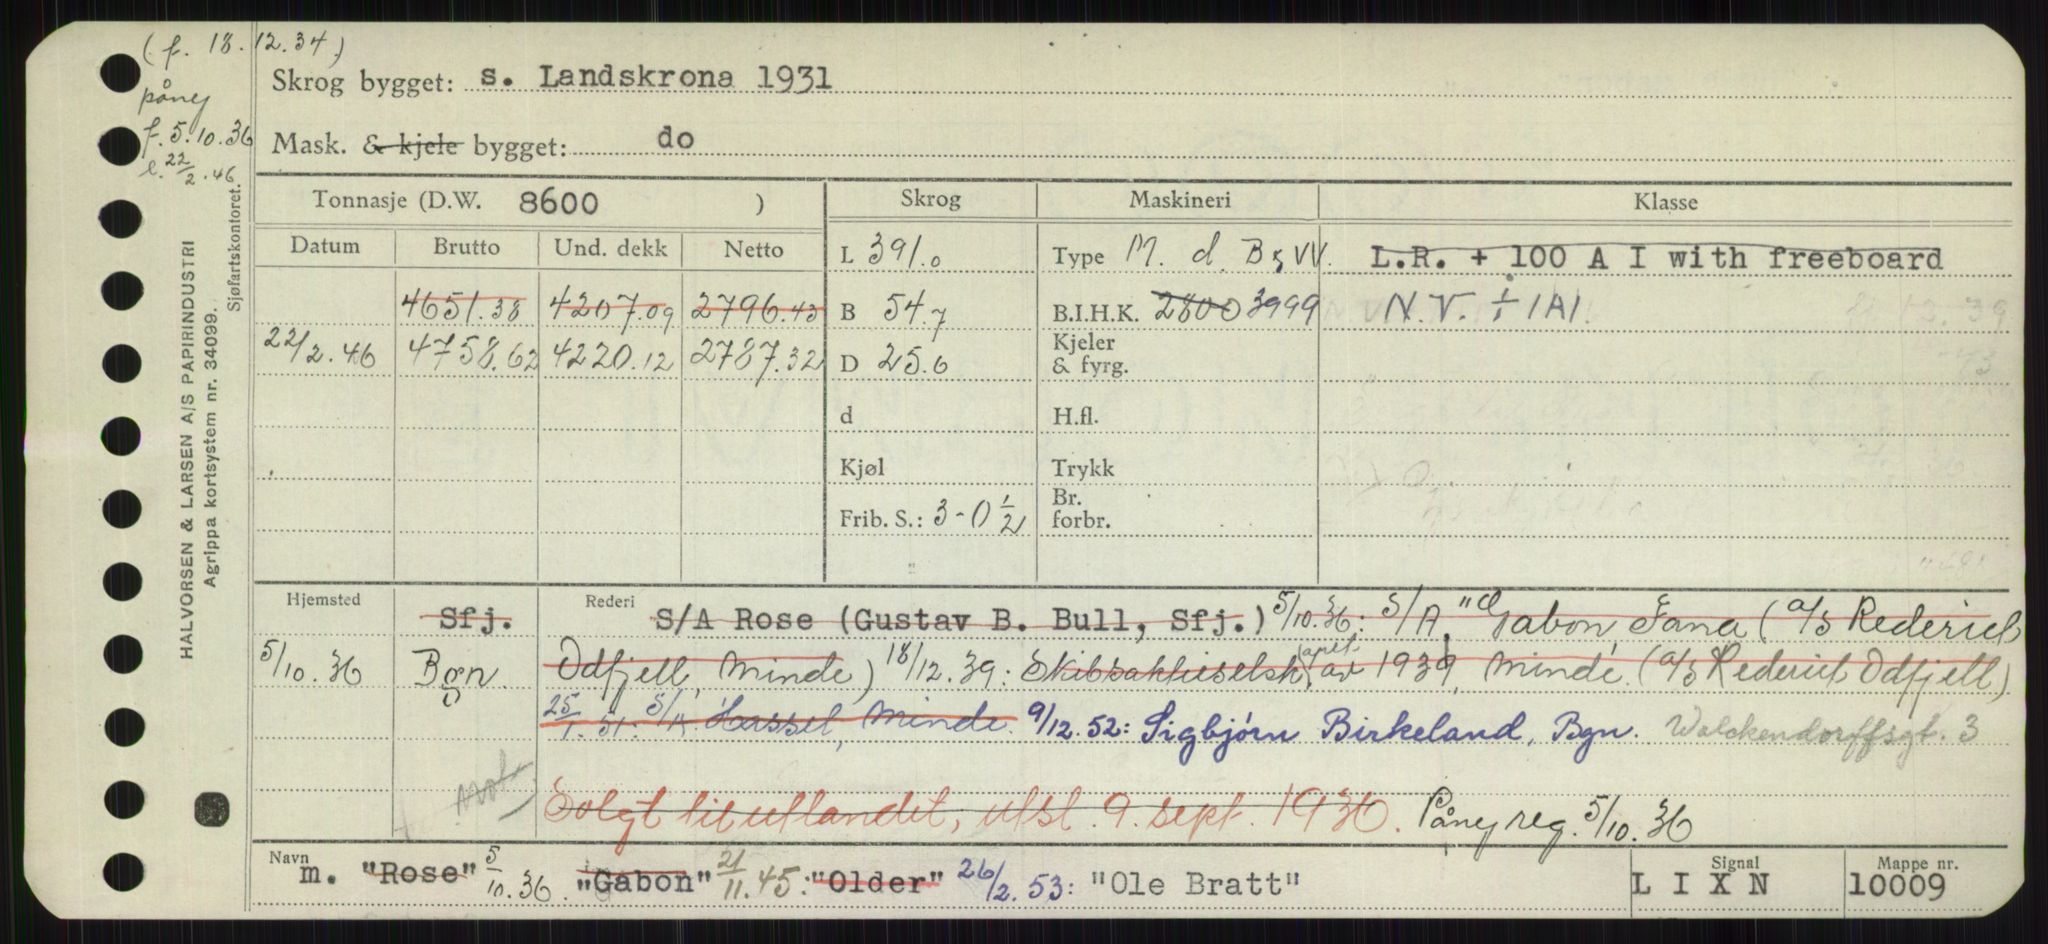 (f. 18.12.34)
påny
f. 5.10.36
l. 22/2.46
HALVORSEN & LARSEN A/S PAPIRINDUSTRI
Agrippa kortsystem nr. 34099.
Sjøfartskontoret.
Skrog bygget: s. Landskrona 1931
Mask. & kjele bygget: do
Tonnasje (D.W. 8600 ) Skrog Maskineri Klasse
Datum Brutto Und. dekk Netto L 391.0 Type M. d. B & W. L.R. + 100 A I with freeboard
4651.38 4207.09 2796.43 B 54.7 B.I.H.K. 2800 3999 N.V. + 1A1.
22/2.46 4758.62 4220.12 2787.32 D 25.6 Kjeler & fyrg.
d H.fl.
Kjøl Trykk
Frib. S.: 3-0 1/2 Br. forbr.
Hjemsted Sfj. Rederi S/A Rose (Gustav B. Bull, Sfj.) 5/10.36: S/A "Gabon", Fana (A/S Rederiet
5/10.36 Bgn. Odfjell, Minde) 18/12.39: Skibsaktieselsk. av april 1939, Minde. (A/S Rederiet Odfjell)
25/1.51: S/A Hassel, Minde. 9/12.52: Sigbjørn Birkeland, Bgn. Walckendorffsgt. 3
Solgt til utlandet, utsl. 9. sept. 1936. Påny reg. 5/10.36
Navn m. "Rose" 5/10.36 "Gabon" 21/11.45: "Older" 26/2.53: "Ole Bratt" Signal L I X N Mappe nr. 10009